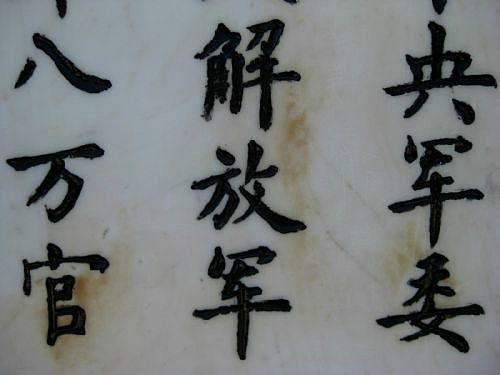 央军委
解放军
八万官